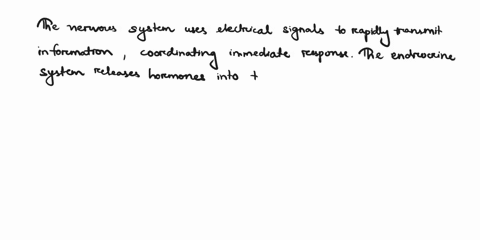 The nervous system uses electrical signals to rapidly transmit
information, coordinating immediate response. The endrocrine
system releases hormones into t